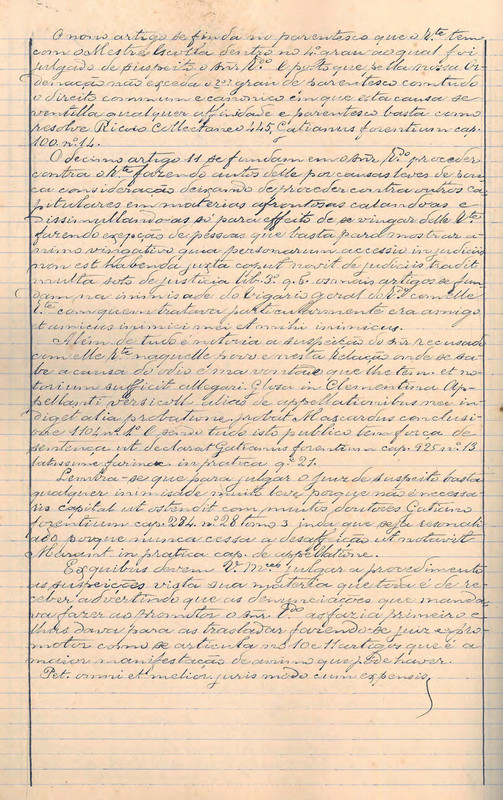 O nono artigo se finda no parentesco que o Rte tem
com o Mestre Escolla dentro no 4º grau ao qual foi
julgado de suspeito o snr Pdo. E posto que pella nossa or
denação não exceda o 2º grau de parentesco comtudo
o direito commum e canonico em que esta causa se
ventilla qualquer affinidade e parentesco basta como
resolve Ricio Collectanea 445, Gatianus forentium cap.
100. nº 14.
O decimo artigo 11 se fundam em o snr Pdo proceder
contra o Rte fazendo autos delle por causas leves de pou
ca consideração deixando de proceder contra outros ca
pitulares em materias afrontosas calandoas e
dissimullando-as só para effeito de se vingar delle Rte
fazendo exepção de pessoas que basta para mostrar a
nimo vingativo quia personarum accessio in judiciis
non est habenda juxta caput novit de judiciis tradit
multa soto de justicia lib. 3º q. 6. os mais artigos se fun
dam na inimisade do Vigario geral do Pdo com elle
Rte com quem tratava particularmente era amigo
et amicus inimici mei est mihi inimicus.
Além de tudo é notoria a suspeição do snr recusado
com elle Rte naquelle povo e nesta Relação onde se sa
be a causa do odio e má vontade que lhe tem. et no
torium sufficit allegari. Glosa in Clementina Ap
pellanti versicolli alias de appellationibus nec in
diget alia probatione. probat Mascardus conclusi
one 1104 nº 1º E sendo tudo isto publico tem força de
sentença ut declarat Gatianus forentium cap. 925 nº 13
latissime farinac in pratica q. 21.
Lembra-se que para julgar o juiz de suspeito basta
qualquer inimisade muito leve porque não é necessa
rio capital ut ostendit com muitos doutores Gatiano
forentium cap. 284. nº 28 tomo 3 inda que seja reconcili
ado porque nunca cessa a desafeição ut notavit
Marant in pratica cap. de appellatione.
Ex quibus devem Vas Mces julgar a procedimento
as suspeições vista sua materia que toda é de re
ceber advertindo que as denunciações que manda
va fazer ao promotor o snr Pdo as fazia primeiro e
lhas dava para as trasladar fazendo-se juiz e pro
motor como se articula no 10 e 11 artigos que é a
maior manifestação de animo que pode haver.
Pet. omni et meliori juris modo cum expensis